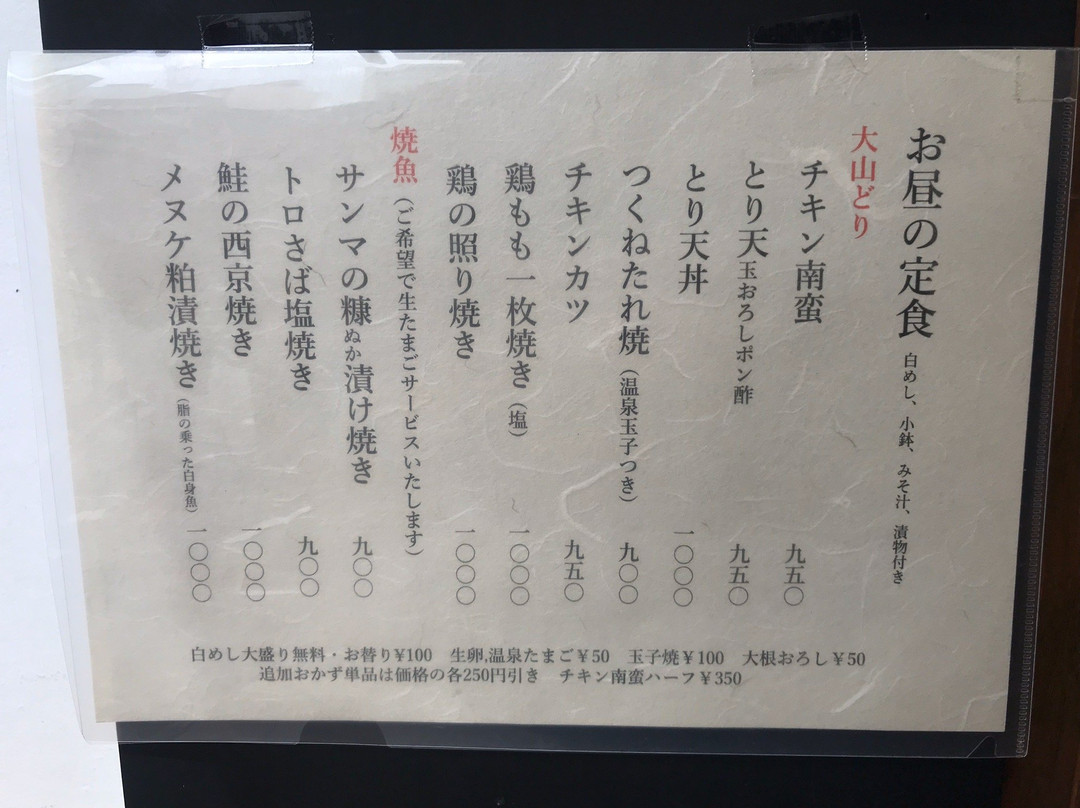 お昼の定食 白めし、小鉢、みそ汁、漬物付き
大山どり
チキン南蛮 九五〇
とり天玉おろしポン酢 九五〇
とり天丼 一〇〇〇
つくねたれ焼(温泉玉子つき) 九〇〇
チキンカツ 九五〇
鶏もも一枚焼き(塩) 一〇〇〇
鶏の照り焼き 一〇〇〇
焼魚(ご希望で生たまごサービスいたします)
サンマの糠ぬか漬け焼き 九〇〇
トロさば塩焼き 九〇〇
鮭の西京焼き 一〇〇〇
メヌケ粕漬焼き(脂の乗った白身魚) 一〇〇〇
白めし大盛り無料・お替り¥100 生卵,温泉たまご¥50 玉子焼¥100 大根おろし¥50
追加おかず単品は価格の各250円引き チキン南蛮ハーフ¥350